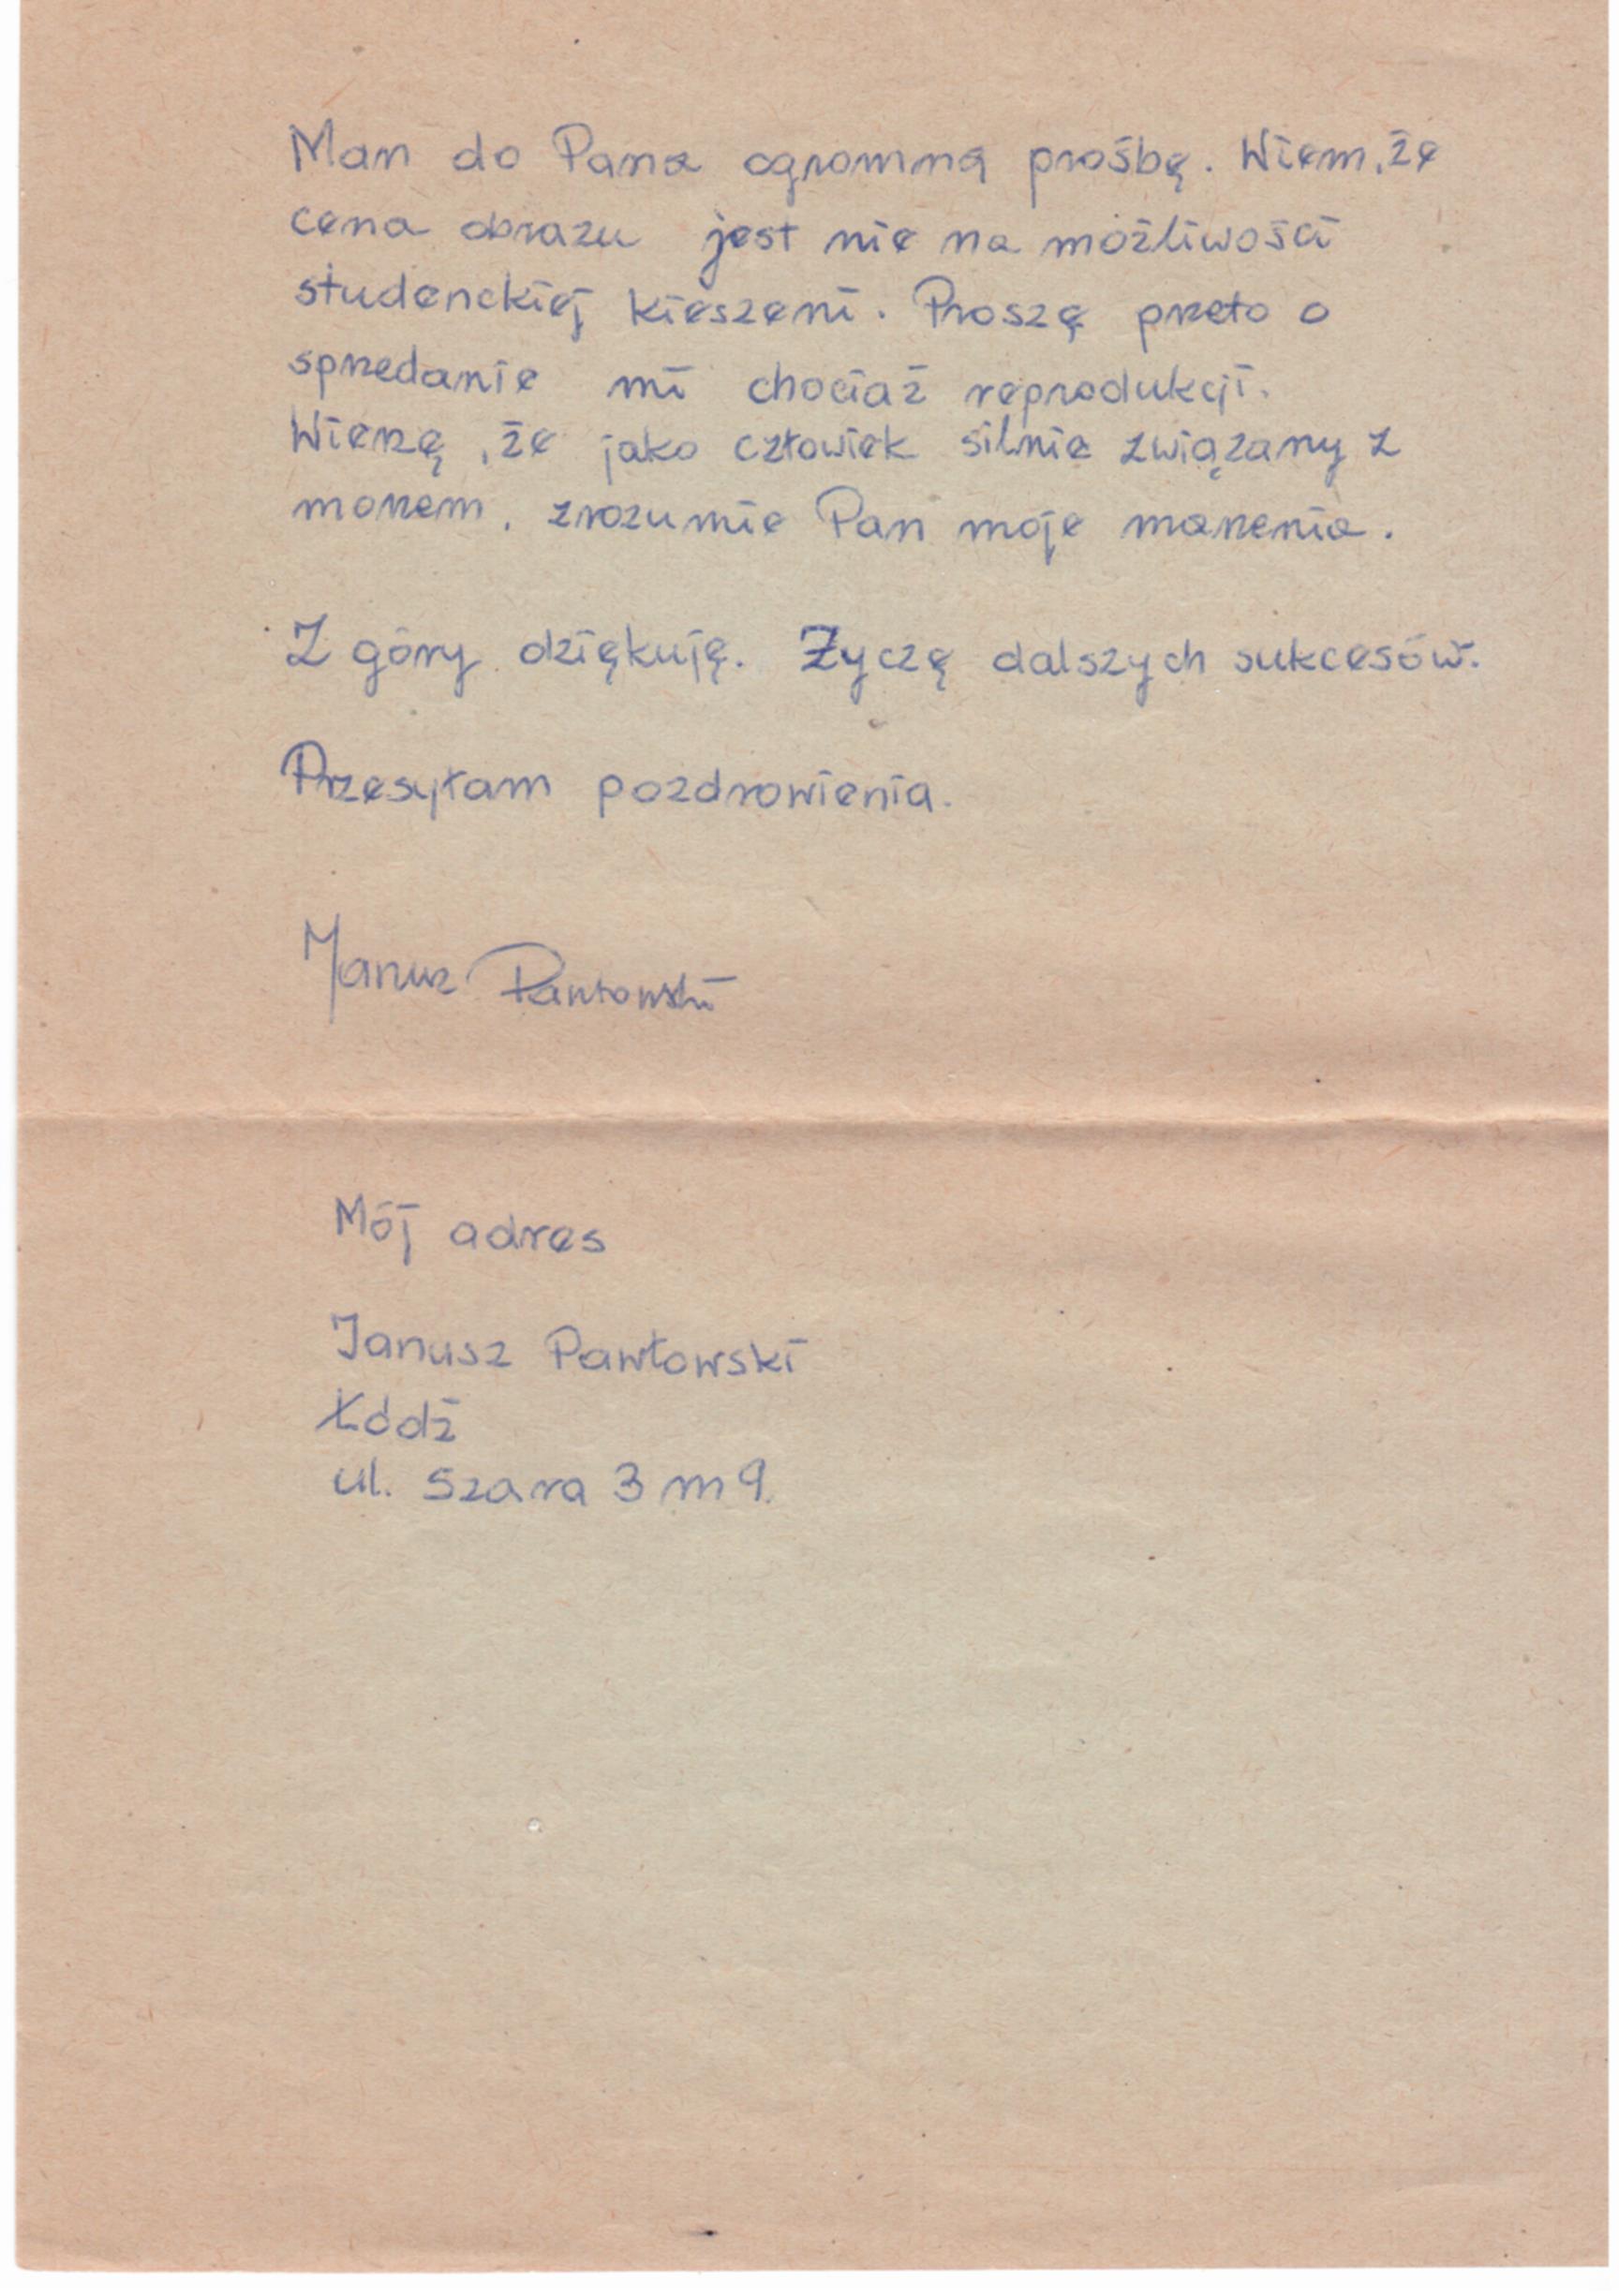 Mam do Pana ogromną prośbę. Wiem, że
cena obrazu jest nie na możliwości
studenckiej kieszeni. Proszę przeto o
sprzedanie mi chociaż reprodukcji.
Wierzę, że jako człowiek silnie związany z
morzem, zrozumie Pan moje marzenia.
Z góry dziękuję. Życzę dalszych sukcesów.
Przesyłam pozdrowienia.
Janusz Pawłowski
Mój adres
Janusz Pawłowski
Łódź
ul. Szara 3 m 9.